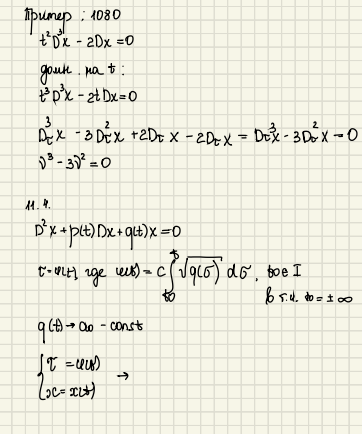 Пример: 1080
t²D³x - 2Dx = 0
домн. на t:
t³D³x - 2tDx = 0
D_τ³x - 3D_τ²x + 2D_τx - 2D_τx = D_τ³x - 3D_τ²x = 0
ν³ - 3ν² = 0
11.4.
D²x + p(t)Dx + q(t)x = 0
τ = φ(t), где φ(t) = c∫_{t₀}^{t} √q(σ) dσ, t₀ ∈ I
в т.ч. t₀ = ±∞
q(t) → a₀ - const
{ τ = φ(t)
{ x = x(t) →